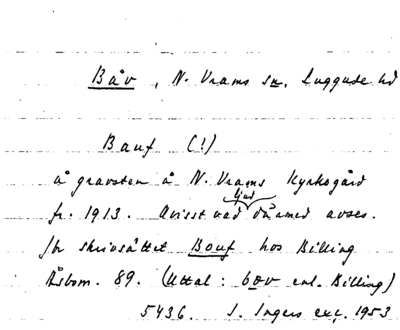 Båv, N. Vrams sn. Luggude hd
Bauf (!)
å gravsten å N. Vrams Kyrkogård
ljud
fr. 1913. Ovisst vad därmed avses.
Jfr skrivsättet Bouf hos Billing
Åsbom. 89. (Uttal: bov enl. Billing)
5436. I. Ingers exc. 1953